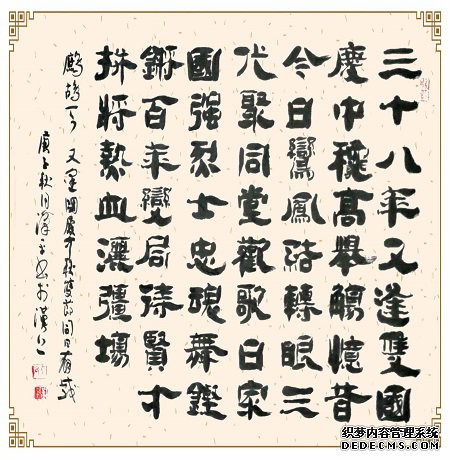 三十八年又逢雙國
慶中穐高舉觴憶昔
今日鸞鳳結轉眼三
代聚同堂歡歌日家
國强烈士忠魂舞鏗
鏘百年變局待賢才
拼將熱血灑疆場
鷓鴣天 又逢國慶中秋雙節同日有感
庚子秋月书於漢上
织梦内容管理系统
DEDECMS.COM